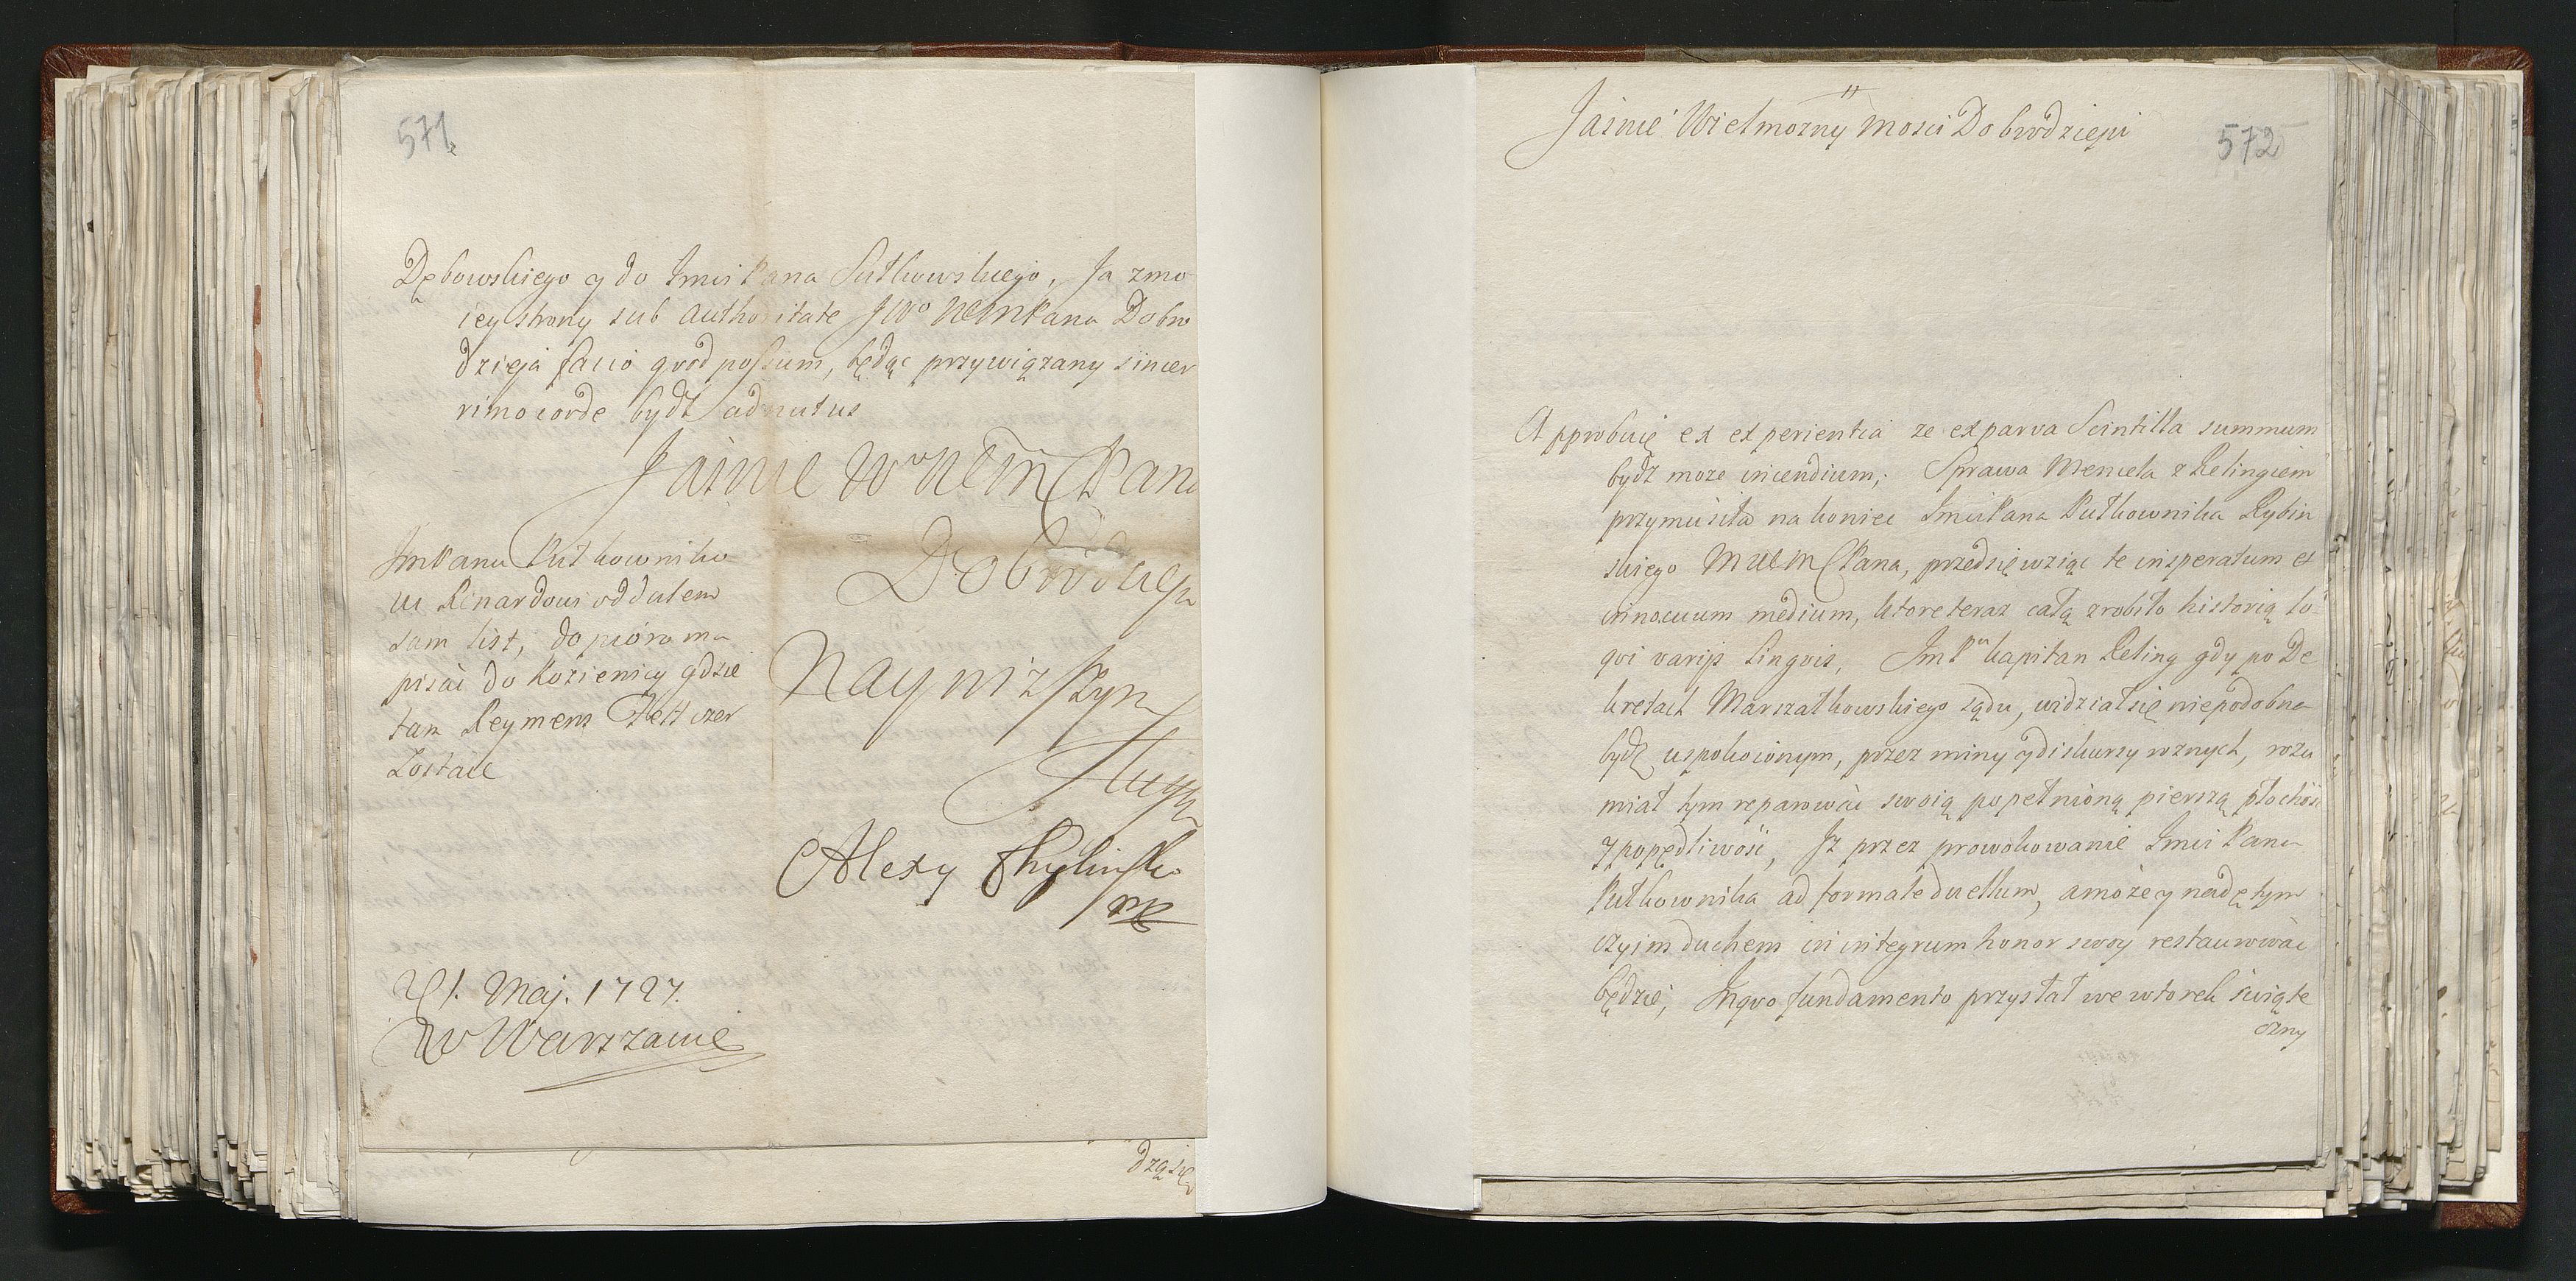 571
Dębowskiego y do Jmci Pana Sułkowskiego, Ja zmo
iey strony sub Authoritate JWo WemPana Dobro
dzieja facio qvod possum, będąc przywiązany sincer
rimo corde bydź ad nutus
Jaśnie Wo WemPana
Dobrodzieja
Nayniższym
Sługą
Alexy
mp
JmPanu Pułkowniko
wi Renardowi oddałem
sam list, do pióro ma
pisać do Kozienicy gdzie
tam Reyment
Zostaie
21. Maj. 1727.
w Warszawie
dzą się
572
Jaśnie Wielmożny Mości Dobrodzieju
Approbuię ex experientia że ex parva Scintilla summum
bydź może incendium; Sprawa Mencla z Relingiem
przymusiła na koniec Jmci Pana Pułkownika Rybin
skiego MWemPana, przedsięwziąć te insperatum et
innocuum medium, które teraz całą zrobiło historią lo
qvi varijs Lingvis, JmPn Kapitan Reling gdy po De
kretach Marszałkowskiego sądu, widział się niepodobna
bydź uspokoionym, przez miny y diskursy rożnych, rozu
miał tym reparować swoią popełnioną pierszą płochość
y popędliwość, Jż przez prowokowanie Jmci Pana
Pułkownika ad formale duellum, a może y nadętym
czyim duchem in integrum honor swoy restaurować
będzie; In qvo fundamento przystał we wtorek świąte
czny